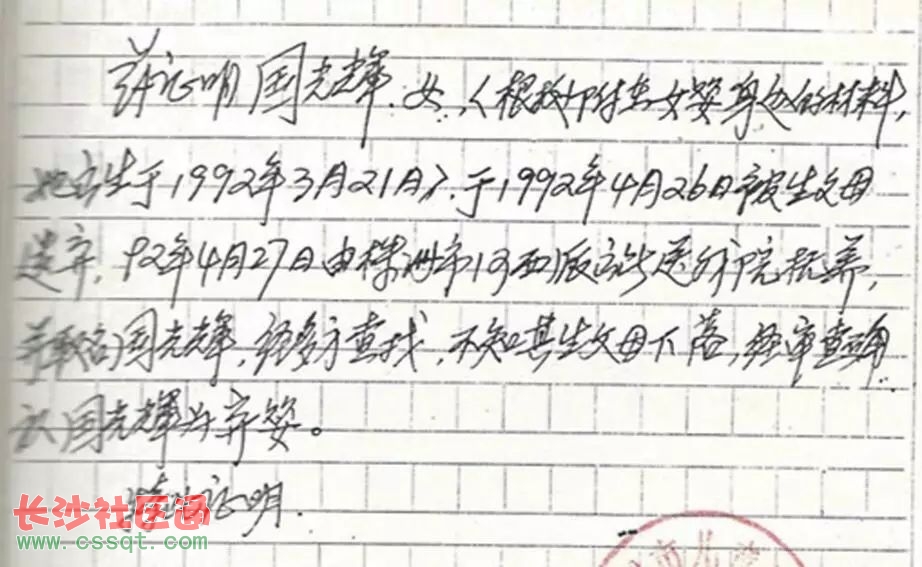 兹证明国光辉,女,(根据所附去女婴身边的材料,
她出生于1992年3月21日),于1992年4月26日被生父母
遗弃,92年4月27日由株洲市河西派出所送我院抚养,
并取名国光辉,经多方查找,不知其生父母下落,经审查确
认国光辉为弃婴。
特此证明.
长沙社区通
www.cssqt.com